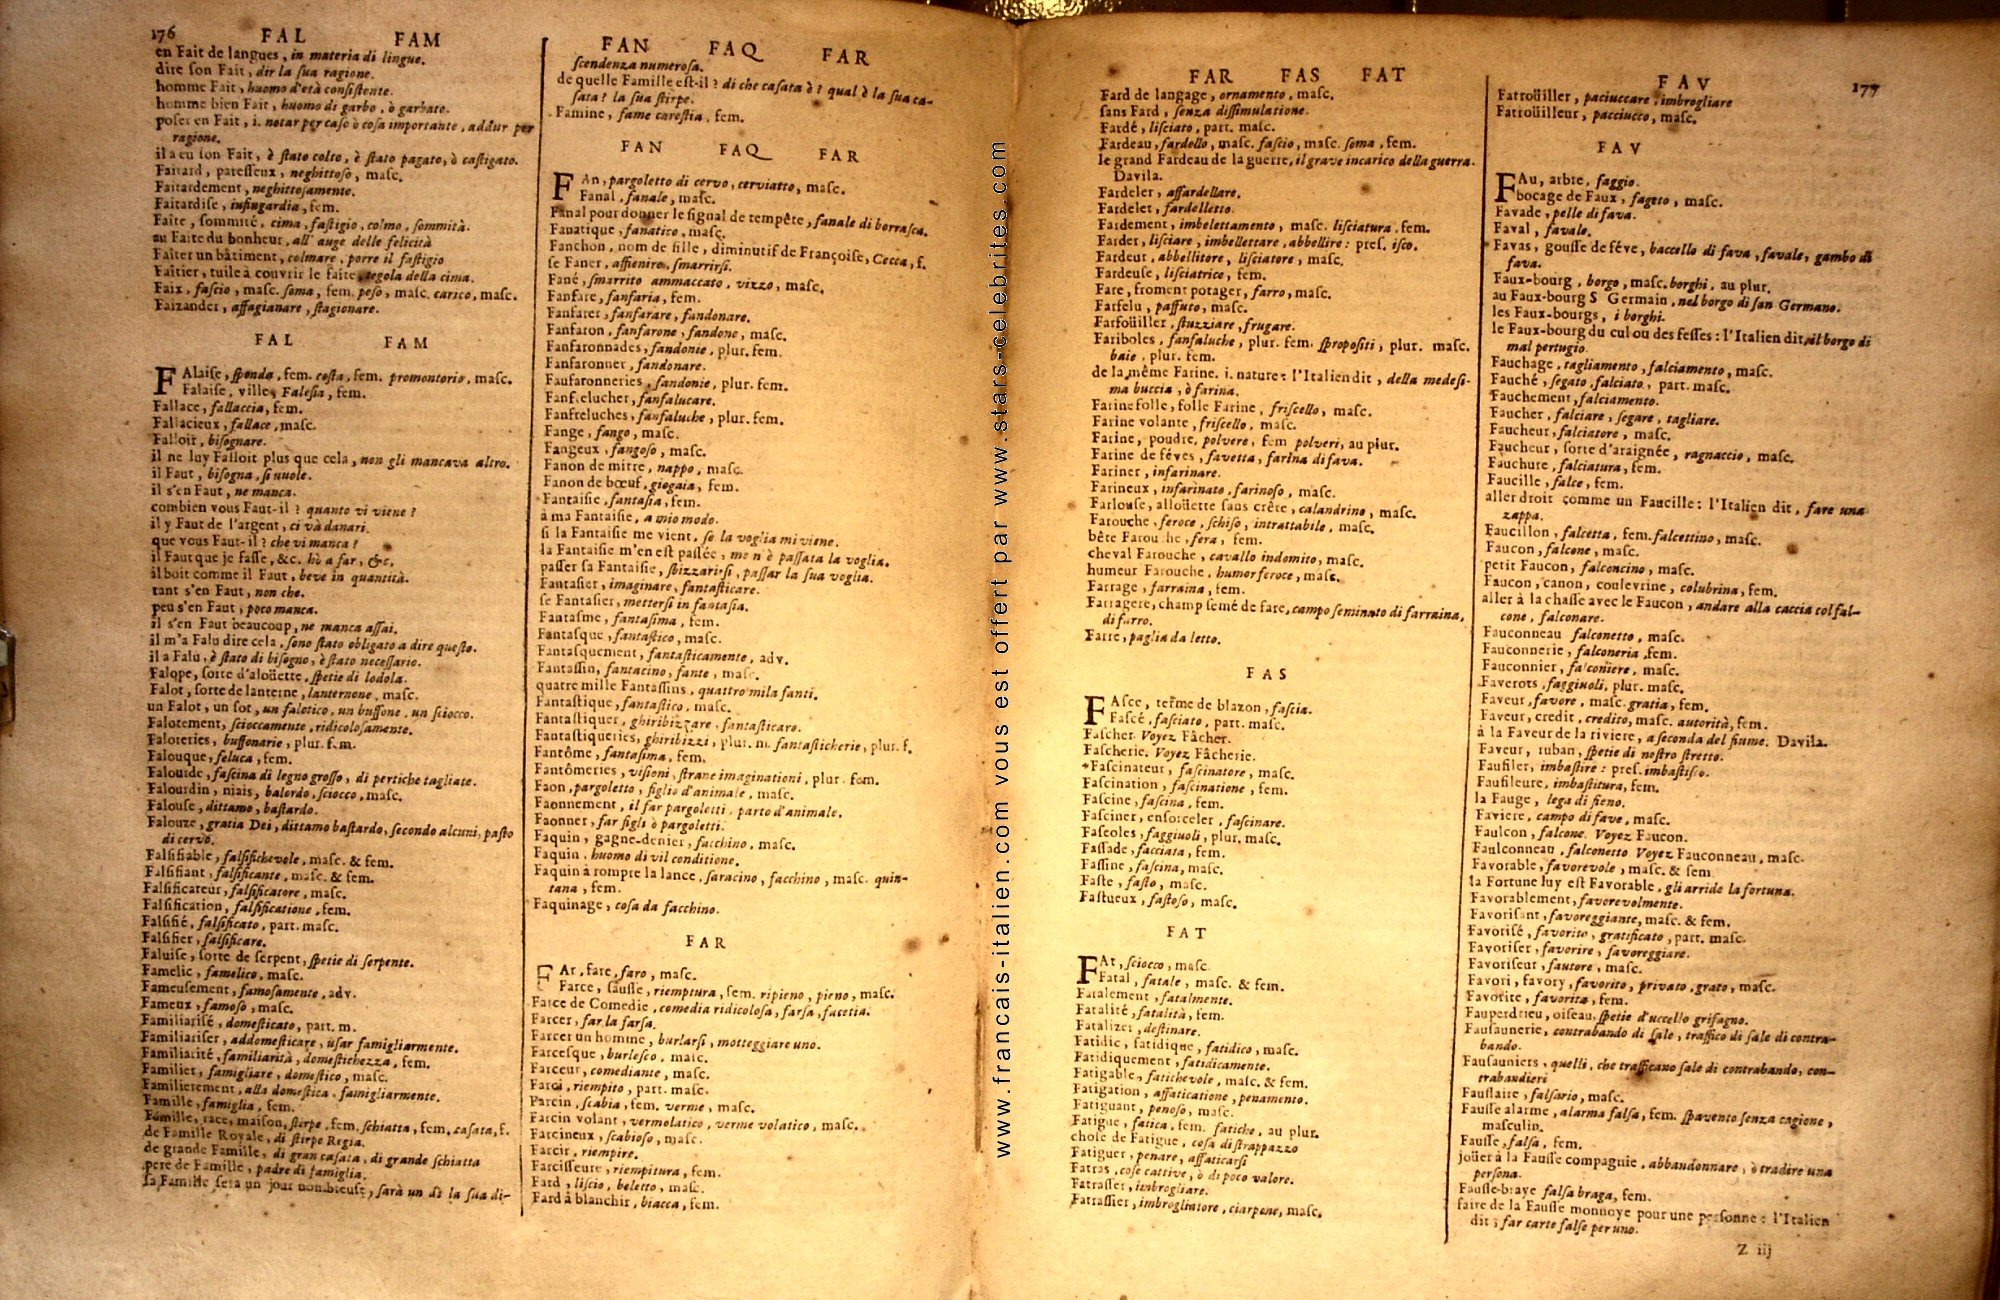 176 FAL FAM
en Fait de langues, in materia di lingue.
dire son Fait, dir la sua ragione.
homme Fait, huomo d'età consistente.
homme bien Fait, huomo di garbo, ò garbato.
poser en Fait, i. notar per caso ò cosa importante, addur per
ragione.
il a eu son Fait, è stato colto, è stato pagato, ò castigato.
Faitard, paresseux, neghittoso, masc.
Faitardement, neghittosamente.
Faitardise, infingardia, fem.
Faîte, sommité, cima, fastigio, colmo, sommità.
au Faîte du bonheur, all' auge delle felicità
Faîter un bâtiment, colmare, porre il fastigio
Faîtier, tuile à couvrir le faîte, tegola della cima.
Faix, fascio, masc. soma, fem. peso, masc. carico, masc.
Faizander, affagianare, stagionare.
FAL FAM
FAlaise, sponda, fem. costa, fem. promontorio, masc.
Falaise, ville, Falesia, fem.
Fallace, fallaccia, fem.
Fallacieux, fallace, masc.
Falloir, bisognare.
il ne luy Falloit plus que cela, non gli mancava altro.
il Faut, bisogna, si vuole.
il s'en Faut, ne manca.
combien vous Faut-il? quanto vi viene?
il y Faut de l'argent, ci và danari.
que vous Faut-il? che vi manca?
il Faut que je fasse, &c. hò a far, &c.
il boit comme il Faut, beve in quantità.
tant s'en Faut, non che.
peu s'en Faut, poco manca.
il s'en Faut beaucoup, ne manca assai.
il m'a Falu dire cela, sono stato obligato a dire questo.
il a Falu, è stato di bisogno, è stato necessario.
Falope, sorte d'aloüette, spetie di lodola.
Falot, sorte de lanterne, lanternone, masc.
un Falot, un sot, un falotico, un buffone, un sciocco.
Falotement, scioccamente, ridicolosamente.
Faloteries, buffonarie, plur. fem.
Falouque, feluca, fem.
Falourde, fascina di legno grosso, di pertiche tagliate.
Falourdin, niais, balordo, sciocco, masc.
Falouse, dittamo, bastardo.
Falouze, gratia Dei, dittamo bastardo, secondo alcuni, pasto
di cervo.
Falsifiable, falsifichevole, masc. & fem.
Falsifiant, falsificante, masc. & fem.
Falsificateur, falsificatore, masc.
Falsification, falsificatione, fem.
Falsifié, falsificato, part. masc.
Falsifier, falsificare.
Faluise, sorte de serpent, spetie di serpente.
Famelic, famelico, masc.
Fameusement, famosamente, adv.
Fameux, famoso, masc.
Familiarisé, domesticato, part. m.
Familiariser, addomesticare, usar famigliarmente.
Familiarité, familiarità, domestichezza, fem.
Familier, famigliare, domestico, masc.
Familierement, alla domestica, famigliarmente.
Famille, famiglia, fem.
Famille, race, maison, stirpe, fem. schiatta, fem. casata, f.
de Famille Royale, di stirpe Regia.
de grande Famille, di gran casata, di grande schiatta
pere de Famille, padre di famiglia.
sa Famille sera un jour nombreuse, sarà un dì la sua di-
FAN FAQ FAR
scendenza numerosa.
de quelle Famille est-il? di che casata è? qual è la sua ca-
sata? la sua stirpe.
Famine, fame carestia, fem.
FAN FAQ FAR
FAn, pargoletto di cervo, cerviatto, masc.
Fanal, fanale, masc.
Fanal pour donner le signal de tempête, fanale di borrasca.
Fanatique, fanatico, masc.
Fanchon, nom de fille, diminutif de Françoise, Cecca, f.
se Faner, affienire, smarrirsi.
Fané, smarrito ammaccato, vizzo, masc.
Fanfare, fanfaria, fem.
Fanfarer, fanfarare, fandonare.
Fanfaron, fanfarone, fandone, masc.
Fanfaronnades, fandonie, plur. fem.
Fanfaronner, fandonare.
Faufaronneries, fandonie, plur. fem.
Fanfrelucher, fanfalucare.
Fanfreluches, fanfaluche, plur. fem.
Fange, fango, masc.
Fangeux, fangoso, masc.
Fanon de mitre, nappo, masc.
Fanon de bœuf, giogaia, fem.
Fantaisie, fantasia, fem.
à ma Fantaisie, a mio modo.
si la Fantaisie me vient, se la voglia mi viene.
la Fantaisie m'en est passée, me n'è passata la voglia.
passer sa Fantaisie, sbizzarirsi, passar la sua voglia.
Fantasier, imaginare, fantasticare.
se Fantasier, mettersi in fantasia.
Fantasme, fantasima, fem.
Fantasque, fantastico, masc.
Fantasquement, fantasticamente, adv.
Fantassin, fantacino, fante, masc.
quatre mille Fantassins, quattro mila fanti.
Fantastique, fantastico, masc.
Fantastiquer, ghiribizzare, fantasticare.
Fantastiqueries, ghiribizzi, plur. m. fantasticherie, plur. f.
Fantôme, fantasima, fem.
Fantômeries, visioni, strane imaginationi, plur. fem.
Faon, pargoletto, figlio d'animale, masc.
Faonnement, il far pargoletti, parto d'animale.
Faonner, far figli ò pargoletti.
Faquin, gagne-denier, facchino, masc.
Faquin, huomo di vil conditione.
Faquin à rompre la lance, saracino, facchino, masc. quin-
tana, fem.
Faquinage, cosa da facchino.
FAR
FAr, fare, faro, masc.
Farce, sausse, riemptura, fem. ripieno, pieno, masc.
Farce de Comedie, comedia ridicolosa, farsa, facetia.
Farcer, far la farsa.
Farcer un homme, burlarsi, motteggiare uno.
Farcesque, burlesco, masc.
Farceur, comediante, masc.
Farci, riempito, part. masc.
Farcin, scabia, fem. verme, masc.
Farcin volant, vermolatico, verme volatico, masc.
Farcineux, scabioso, masc.
Farcir, riempire.
Farcisseure, riempitura, fem.
Fard, liscio, beletto, masc.
Fard à blanchir, biacca, fem.
www.francais-italien.com vous est offert par www.stars-celebrites.com
FAR FAS FAT
Fard de langage, ornamento, masc.
sans Fard, senza dissimulatione.
Fardé, lisciato, part. masc.
Fardeau, fardello, masc. fascio, masc. soma, fem.
le grand Fardeau de la guerre, il grave incarico della guerra.
Davila.
Fardeler, affardellare.
Fardelet, fardelletto.
Fardement, imbelettamento, masc. lisciatura, fem.
Farder, lisciare, imbellettare, abbellire: pres. isco.
Fardeur, abbellitore, lisciatore, masc.
Fardeuse, lisciatrice, fem.
Fare, froment potager, farro, masc.
Farfelu, paffuto, masc.
Farfoüiller, stuzziare, frugare.
Fariboles, fanfaluche, plur. fem. spropositi, plur. masc.
baie, plur. fem.
de la même Farine, i. nature: l'Italien dit, della medesi-
ma buccia, ò farina.
Farine folle, folle Farine, friscello, masc.
Farine volante, friscello, masc.
Farine, poudre, polvere, fem polveri, au plur.
Farine de féves, favetta, farina di fava.
Fariner, infarinare.
Farineux, infarinato, farinoso, masc.
Farlouse, alloüette sans crête, calandrino, masc.
Farouche, feroce, schiso, intrattabile, masc.
bête Farouche, fera, fem.
cheval Farouche, cavallo indomito, masc.
humeur Farouche, humor feroce, masc.
Farrage, farraina, fem.
Farragere, champ semé de fare, campo seminato di farraina,
di farro.
Farre, paglia da letto.
FAS
FAsce, terme de blazon, fascia.
Fascé, fasciato, part. masc.
Fascher. Voyez Fâcher.
Fascherie. Voyez Fâcherie.
Fascinateur, fascinatore, masc.
Fascination, fascinatione, fem.
Fascine, fascina, fem.
Fasciner, ensorceler, fascinare.
Fascoles, faggiuoli, plur. masc.
Fassade, facciata, fem.
Fassine, fascina, masc.
Faste, fasto, masc.
Fastueux, fastoso, masc.
FAT
FAt, sciocco, masc.
Fatal, fatale, masc. & fem.
Fatalement, fatalmente.
Fatalité, fatalità, fem.
Fatalizer, destinare.
Fatidic, fatidique, fatidico, masc.
Fatidiquement, fatidicamente.
Fatigable, fatichevole, masc. & fem.
Fatigation, affaticatione, penamento.
Fatiguant, penoso, masc.
Fatigue, fatica, fem. fatiche, au plur.
chose de Fatigue, cosa di strappazzo
Fatiguer, penare, affaticarsi
Fatras, cose cattive, ò di poco valore.
Fatrasser, imbrogliare.
Fatrassier, imbrogliatore, ciarpone, masc.
FAV 177
Fatroüiller, paciuccare, imbrogliare
Fatroüilleur, pacciucco, masc.
FAV
FAu, arbre, faggio.
bocage de Faux, fageto, masc.
Favade, pelle di fava.
Faval, favale.
Favas, gousse de féve, baccello di fava, favale, gambo di
fava.
Faux-bourg, borgo, masc. borghi, au plur.
au Faux-bourg S Germain, nel borgo di san Germano.
les Faux-bourgs, i borghi.
le Faux-bourg du cul ou des fesses: l'Italien dit, il borgo di
mal pertugio.
Fauchage, tagliamento, falciamento, masc.
Fauché, segato, falciato, part. masc.
Fauchement, falciamento.
Faucher, falciare, segare, tagliare.
Faucheur, falciatore, masc.
Faucheur, sorte d'araignée, ragnaccio, masc.
Fauchure, falciatura, fem.
Faucille, falce, fem.
aller droit comme un Faucille: l'Italien dit, fare una
zappa.
Faucillon, falcetta, fem. falcettino, masc.
Faucon, falcone, masc.
petit Faucon, falconcino, masc.
Faucon, canon, coulevrine, colubrina, fem.
aller à la chasse avec le Faucon, andare alla caccia col fal-
cone, falconare.
Fauconneau falconetto, masc.
Fauconnerie, falconeria, fem.
Fauconnier, falconiere, masc.
Faverots, faggiuoli, plur. masc.
Faveur, favore, masc. gratia, fem.
Faveur, credit, credito, masc. autorità, fem.
à la Faveur de la riviere, a seconda del fiume. Davila.
Faveur, ruban, spetie di nostro stretto.
Faufiler, imbastire: pres. imbastisco.
Faufileure, imbastitura, fem.
la Fauge, lega di fieno.
Faviere, campo di fave, masc.
Faulcon, falcone. Voyez Faucon.
Faulconneau, falconetto Voyez Fauconneau, masc.
Favorable, favorevole, masc. & fem
la Fortune luy est Favorable, gli arride la fortuna.
Favorablement, favorevolmente.
Favorisant, favoreggiante, masc. & fem.
Favorisé, favorito, gratificato, part. masc.
Favoriser, favorire, favoreggiare.
Favoriseur, fautore, masc.
Favori, favory, favorito, privato, grato, masc.
Favorite, favorita, fem.
Fauperdrieu, oiseau, spetie d'uccello grifagno.
Fausaunerie, contrabando di sale, traffico di sale di contra-
bando.
Fausauniers, quelli, che trafficano sale di contrabando, con-
trabandieri
Faussaire, falsario, masc.
Fausse alarme, alarma falsa, fem. spavento senza cagione,
masculin.
Fausse, falsa, fem.
joüer à la Fausse compagnie, abbandonnare, ò tradire una
persona.
Fausse-braye falsa braga, fem.
faire de la Fausse monnoye pour une personne: l'Italien
dit, far carte false per uno.
Z iij